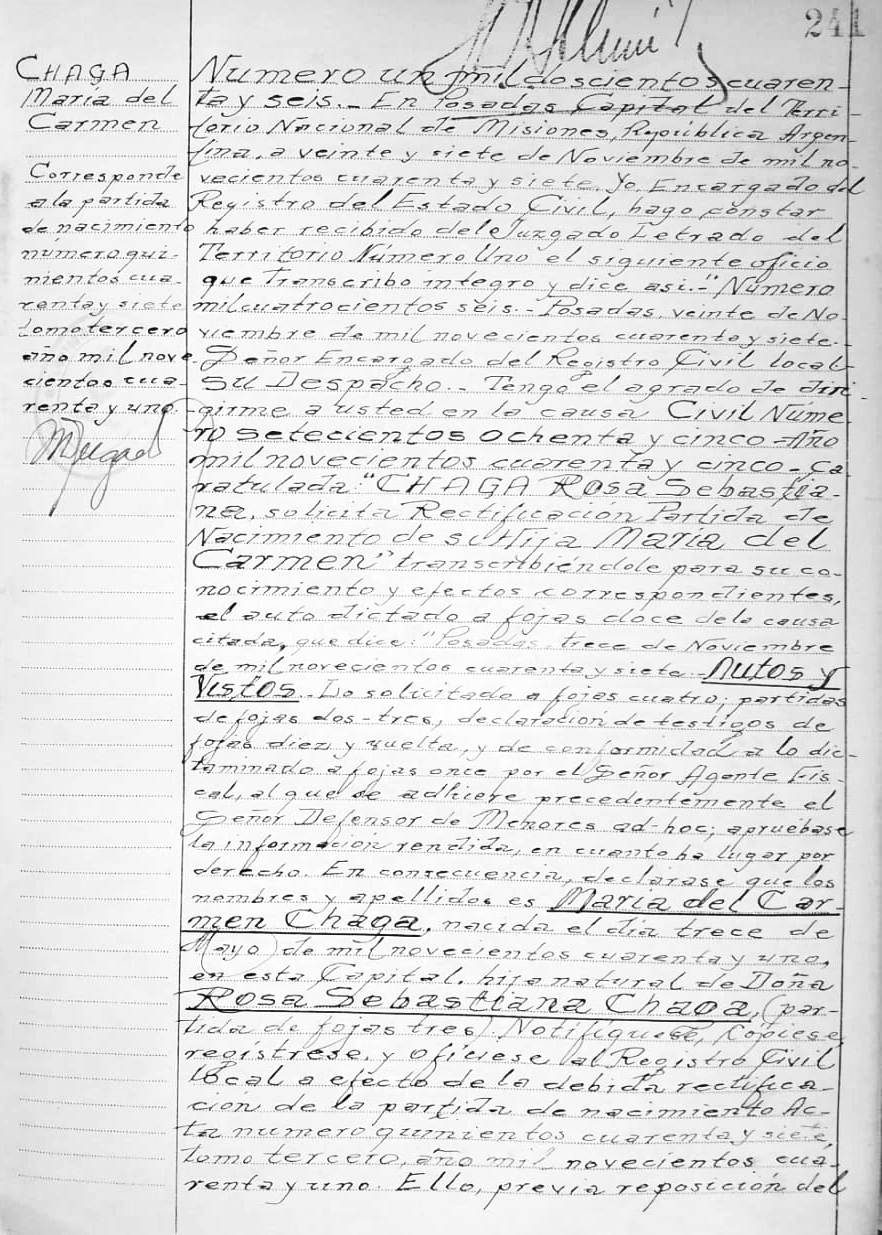 241
CHAGA
María del
Carmen
Corresponde
a la partida
de nacimiento
número qui-
nientos cua-
renta y siete
tomo tercero
año mil nove-
cientos cua-
renta y uno.
Numero un mil doscientos cuaren-
ta y seis.- En Posadas Capital del Terri-
torio Nacional de Misiones, República Argen-
tina, a veinte y siete de Noviembre de mil no-
vecientos cuarenta y siete. Yo Encargado del
Registro del Estado Civil, hago constar
haber recibido dele Juzgado Letrado del
Territorio Número Uno el siguiente oficio
que Transcribo integro y dice asi.-" Número
mil cuatrocientos seis.- Posadas, veinte de No-
viembre de mil novecientos cuarenta y siete.-
Señor Encargado del Registro Civil local-
Su Despacho.- Tengo el agrado de diri-
girme a usted en la causa Civil Núme-
ro setecientos ochenta y cinco -Año
mil novecientos cuarenta y cinco - Ca-
ratulada: "CHAGA Rosa Sebastia-
na, solicita Rectificación Partida de
Nacimiento de su Hija María del
Carmen" transcribiéndole para su co-
nocimiento y efectos correspondientes,
el auto dictado a fojas doce dela causa
citada, que dice: "Posadas, trece de Noviembre
de mil novecientos cuarenta y siete.- Autos y
Vistos.- Lo solicitado a fojas cuatro; partidas
de fojas dos-tres, declaración de testigos de
fojas diez y vuelta, y de conformidad a lo dic-
taminado a fojas once por el Señor Agente Fis-
cal, al que se adhiere precedentemente el
Señor Defensor de Menores ad-hoc; apruebase
la información rendida, en cuanto ha lugar por
derecho. En consecuencia, declárase que los
nombres y apellidos es María del Car-
men Chaga, nacida el día trece de
Mayo de mil novecientos cuarenta y uno,
en esta Capital, hija natural de Doña
Rosa Sebastiana Chaga, (par-
tida de fojas tres). Notifíquese, Cópiese
regístrese, y ofíciese al Registro Civil
local a efecto de la debida rectifica-
ción de la partida de nacimiento Ac-
ta número quinientos cuarenta y siete,
tomo tercero, año mil novecientos cua-
renta y uno. Ello, previa reposición del